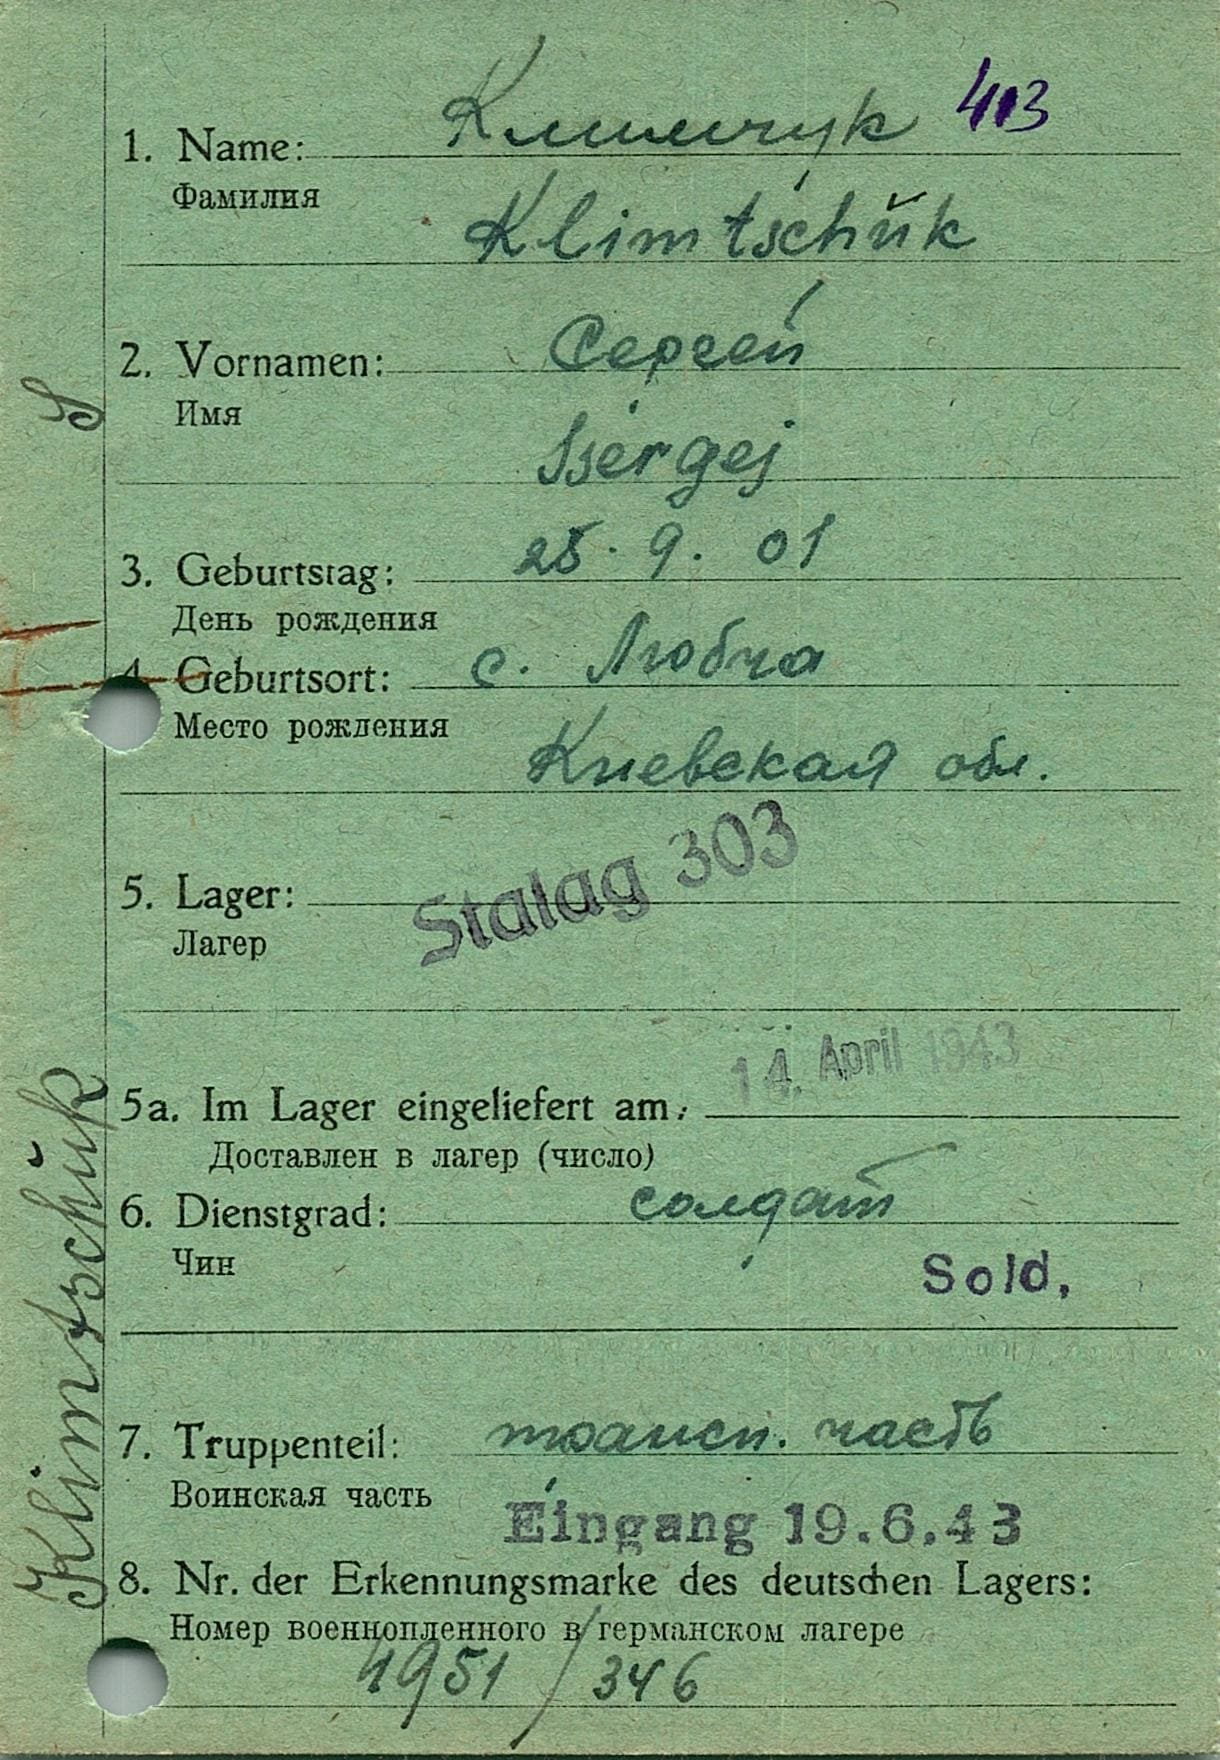 Климчук 413
1. Name:
Фамилия
Klimtschŭk
2. Vornamen: Сергей
Имя
S
Ssergej
3. Geburtstag: 25. 9. 01
День рождения
4. Geburtsort: с. Любча
Место рождения
Киевская обл.
5. Lager: Stalag 303
Лагер
14. April 1943
5a. Im Lager eingeliefert am:
Доставлен в лагер (число)
6. Dienstgrad: солдат
Чин
Sold.
7. Truppenteil: трансп. часть
Воинская часть
Eingang 19.6.43
8. Nr. der Erkennungsmarke des deutschen Lagers:
Номер военнопленного в германском лагере
4951 / 346
Klimtschŭk